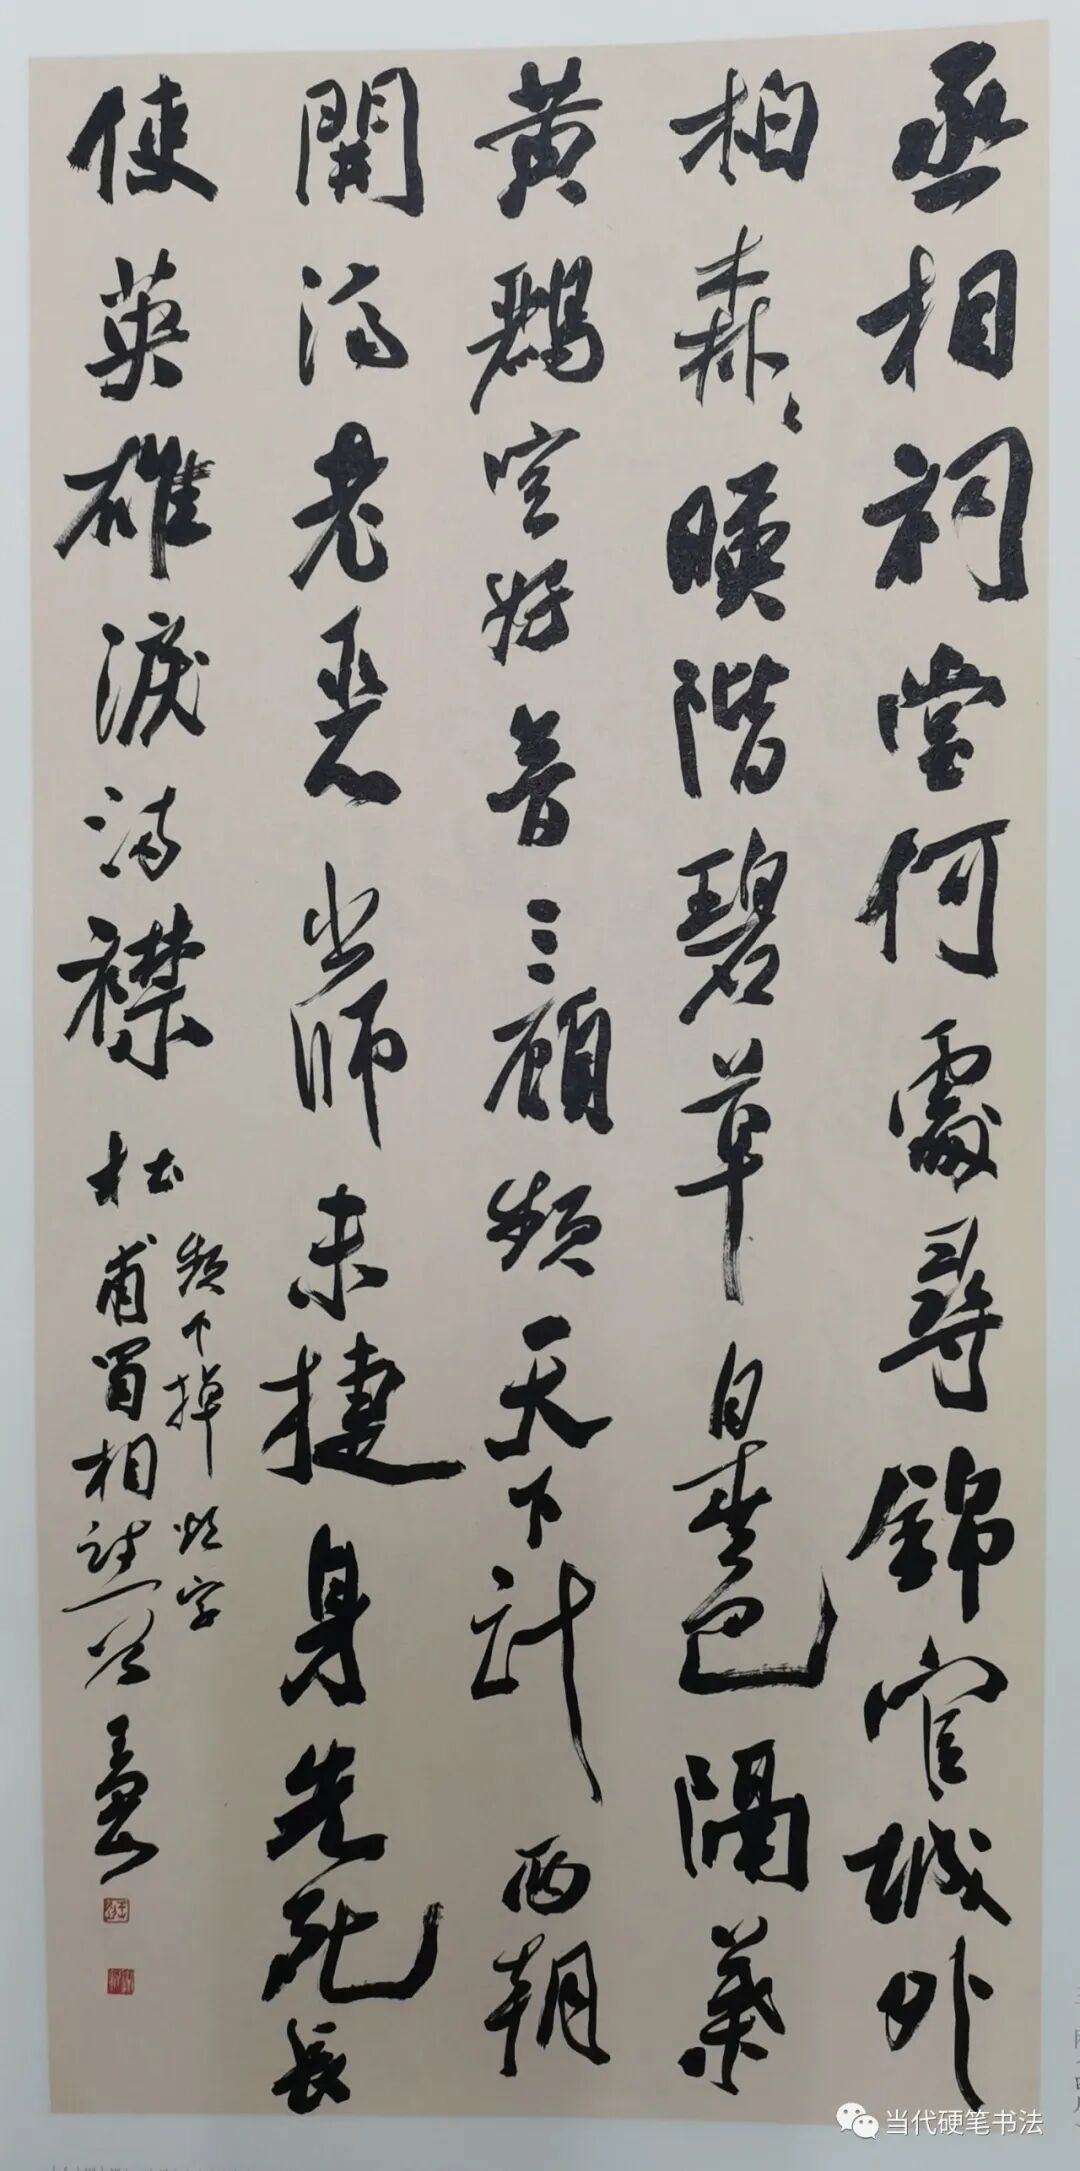 丞相祠堂何處尋錦官城外
柏森〻暎階碧草自春色隔葉
黃鸝空好音三顧頻天下計兩朝
開濟老臣心出師未捷身先死長
使英雄淚滿襟
頻下掉煩字
杜甫蜀相詩一首
当代硬笔书法